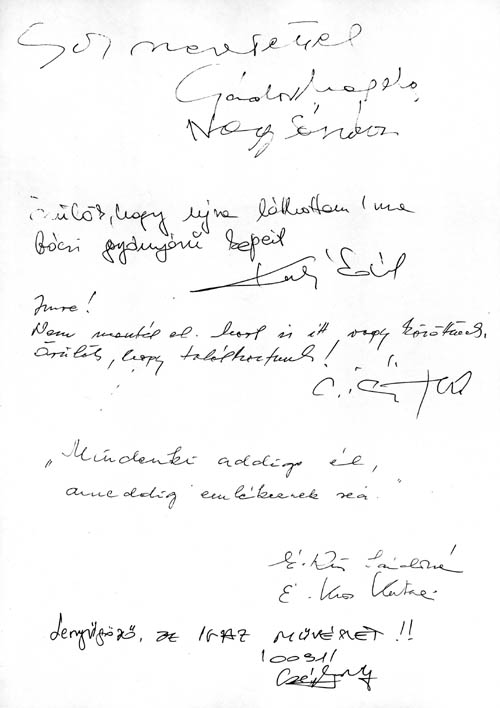 Sok szeretettel
Gádor Magda
Nagy Sándor
Örülök, hogy újra láthattam Ima
Bácsi gyönyörű képeit
Imre!
Nem mentél el. most is itt vagy közöttünk.
Örülök, hogy találkoztunk!
"Mindenki addig él,
ameddig emlékeznek rá."
É. Kiss Sándorné
É. Kiss Katalin
Lenyűgöző, ez IGAZ MŰVÉSZET !!
100311